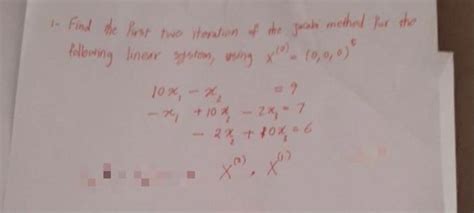 1- Find the first two iteration of the jacobi method for the
following linear system, using x⁽⁰⁾ = (0,0,0)ᵗ
10x₁ - x₂ = 9
-x₁ + 10x₂ - 2x₃ = 7
- 2x₂ + 10x₃ = 6